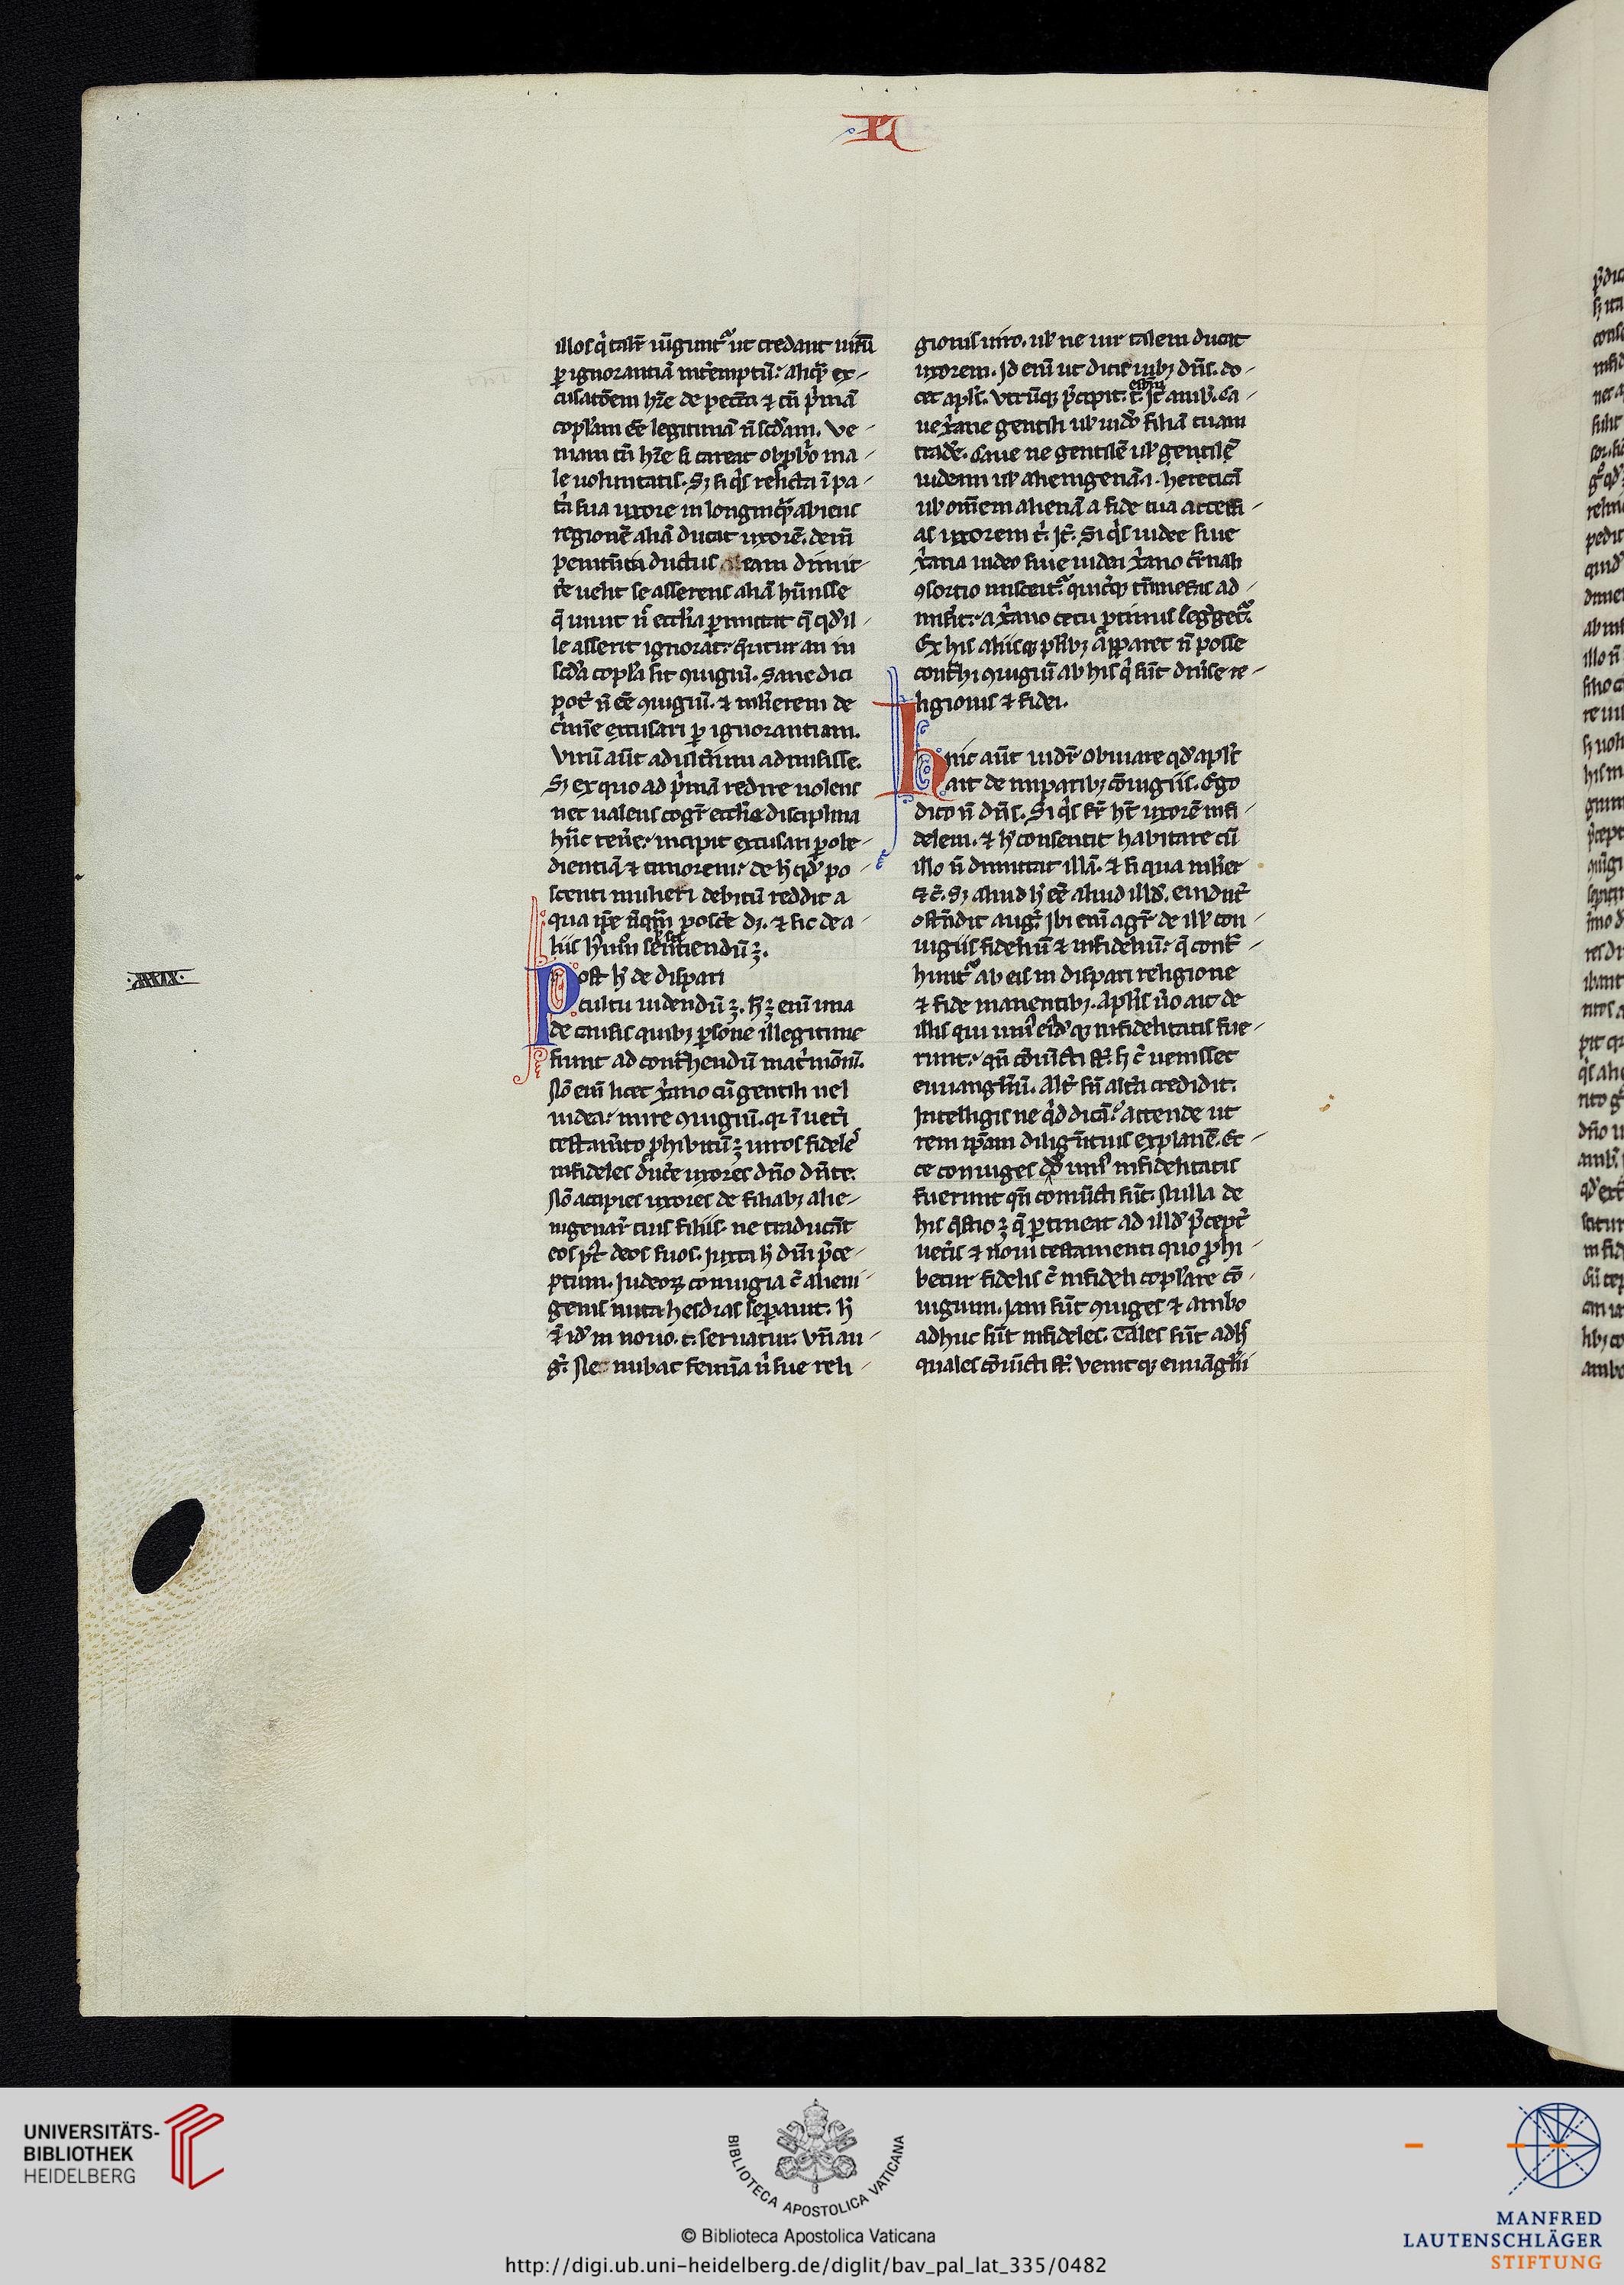 L
illos q̇ talr̄ iūgunt᷑ ut credant uirū
ꝑ ignorantiā int̄emptū: aliqͣ ex-
cusatōem hr̄e de peccō ⁊ cū p̄mā
coplam eē legitimā n̄ scdam. Ve-
niam tn̄ hr̄e si careat obprobrio ma-
le uoluntatis. Sꝫ si qͥs relicta ī pa-
tͥa sua uxore in longinqͣ abiens
regionē aliā ducat uxorē. dein̄
penitn̄tia ductus eam dimit-
tē uelit se asserens aliā hūisse
q̄ uiuit n̄ eccłia ꝑmittat q̄ qd il-
le asserit ignorat: q̄ritur an in
scda copla sit ꝯiugiū. Sane dici
pot̄ n̄ eē ꝯiugiū. ⁊ mulierem de
cͥmīe excusari ꝑ ignorantiam.
Virū aūt adulterium admisisse.
Sꝫ ex quo ad pͥmā redire uolens
nec ualens cogit̄ eccłie disciplina
hāc tenēe: incipit excusari ꝑ obe-
dientiā ⁊ timorem: de h̄ qd po-
scenti mulieri debitū reddit a
qua ip̄e nūqͣm poscē dꝫ. ⁊ sic de a-
liis h̄mōi sentiendū ꝫ.
Post h̄ de dispari
cultu uidendū ꝫ. h̄ ꝫ enī una
de causis quibꝫ ꝑsone illegitime
fiunt ad contͣhendū matͥmōniū.
Nō enī licet xͥano cū gentili uel
iudea: inire ꝯiugiū. qꝛ ī uetͥi
testam̄to ꝓhibitū ꝫ uiros fideles
infideles ducē uxores dn̄o dn̄te.
Nō accipies uxores de filiabꝫ alie-
nigenaꝝ tuis filiis. ne traducāt
eos pꝰt deos suos. Juxta h̄ dn̄i p̄ce-
ptum. Judeoꝝ coniugia c̄ alieni-
genis inita hesdras seꝑauit. h̄
⁊ id in nouo. t. seruatur. Vn̄ au-
g᷑. Ne nubat femīa n̄ sue reli-
gionis uiro. ul ne uir talem ducat
uxorem. Id enī ut dicis iubꝫ dn̄s. do-
cet apls̄. Vtrūqꝫ p̄cipit. t. Jt̄ amb᷑. Ca-
ue xͥane gentili ul iudeo filiā tuam
tradē. Caue ne gentilē ul gentilē
iudeam ul alienigenā .i. hereticā
ul om̄em alienā a fide tua accersi-
as uxorem t̄. Jt̄. Si qͥs iudee siue
xͥana iudeo siue iudea xͥano carnali
ꝯsortio misceat᷑: quicūqꝫ tm̄ nefas ad-
miserit: a xͥano cetu ꝓtinus segregetͣ.
Ex his aliisqꝫ plībꝫ apparet n̄ posse
contͣhi ꝯiugiū ab his qͥ sūt diūse re-
ligionis ⁊ fidei.
huic aūt uidr̄ obuiare qd apls̄
ait de imparibꝫ cōiugiis. Ego
dico n̄ dn̄s. Si qͥs fr̄ ht̄ uxorē infi-
delem. ⁊ h̄ consentit habitare cū
illo n̄ dimittat illā. ⁊ si qua mulier
⁊c̄. Sꝫ aliud h̄ eē aliud illd. euidn̄t
ostn̄dit aug᷑. Ibi enī agit̄ de ill̄ con-
iugiis fideliū ⁊ infideliū: q̄ contͣ-
hunt᷑ ab eis in dispari religione
⁊ fide manentibꝫ. Apls̄ uo ait de
illis qui uniꝰ eidqꝫ infidelitatis fue-
runt: qn̄ cōiūcti st̄. sꝫ c̄ uenisset
euuanglīū. Altͥ sn̄ altͣa credidit.
Intelligis ne qͥd dicā: attende ut
rem ip̄am diligētius explanē. Ec-
ce coniuges uniꝰ infidelitatis
fuerunt qn̄ coniūcti sūt. Nulla de
his q̄stio ꝫ q̄ ꝑtineat ad illd p̄ceptū
uetͥis ⁊ noui testamenti quo ꝓhi-
betur fidelis c̄ infideli coplare cō-
iugium. Jam sūt ꝯiuges ⁊ ambo
adhuc sūt infideles. Tales sūt adh̄
quales cōiūcti st̄. Venit qꝫ euuāglii
UNIVERSITÄTS-
BIBLIOTHEK
HEIDELBERG
BIBLIOTECA APOSTOLICA VATICANA
© Biblioteca Apostolica Vaticana
http://digi.ub.uni-heidelberg.de/diglit/bav_pal_lat_335/0482
MANFRED
LAUTENSCHLÄGER
STIFTUNG